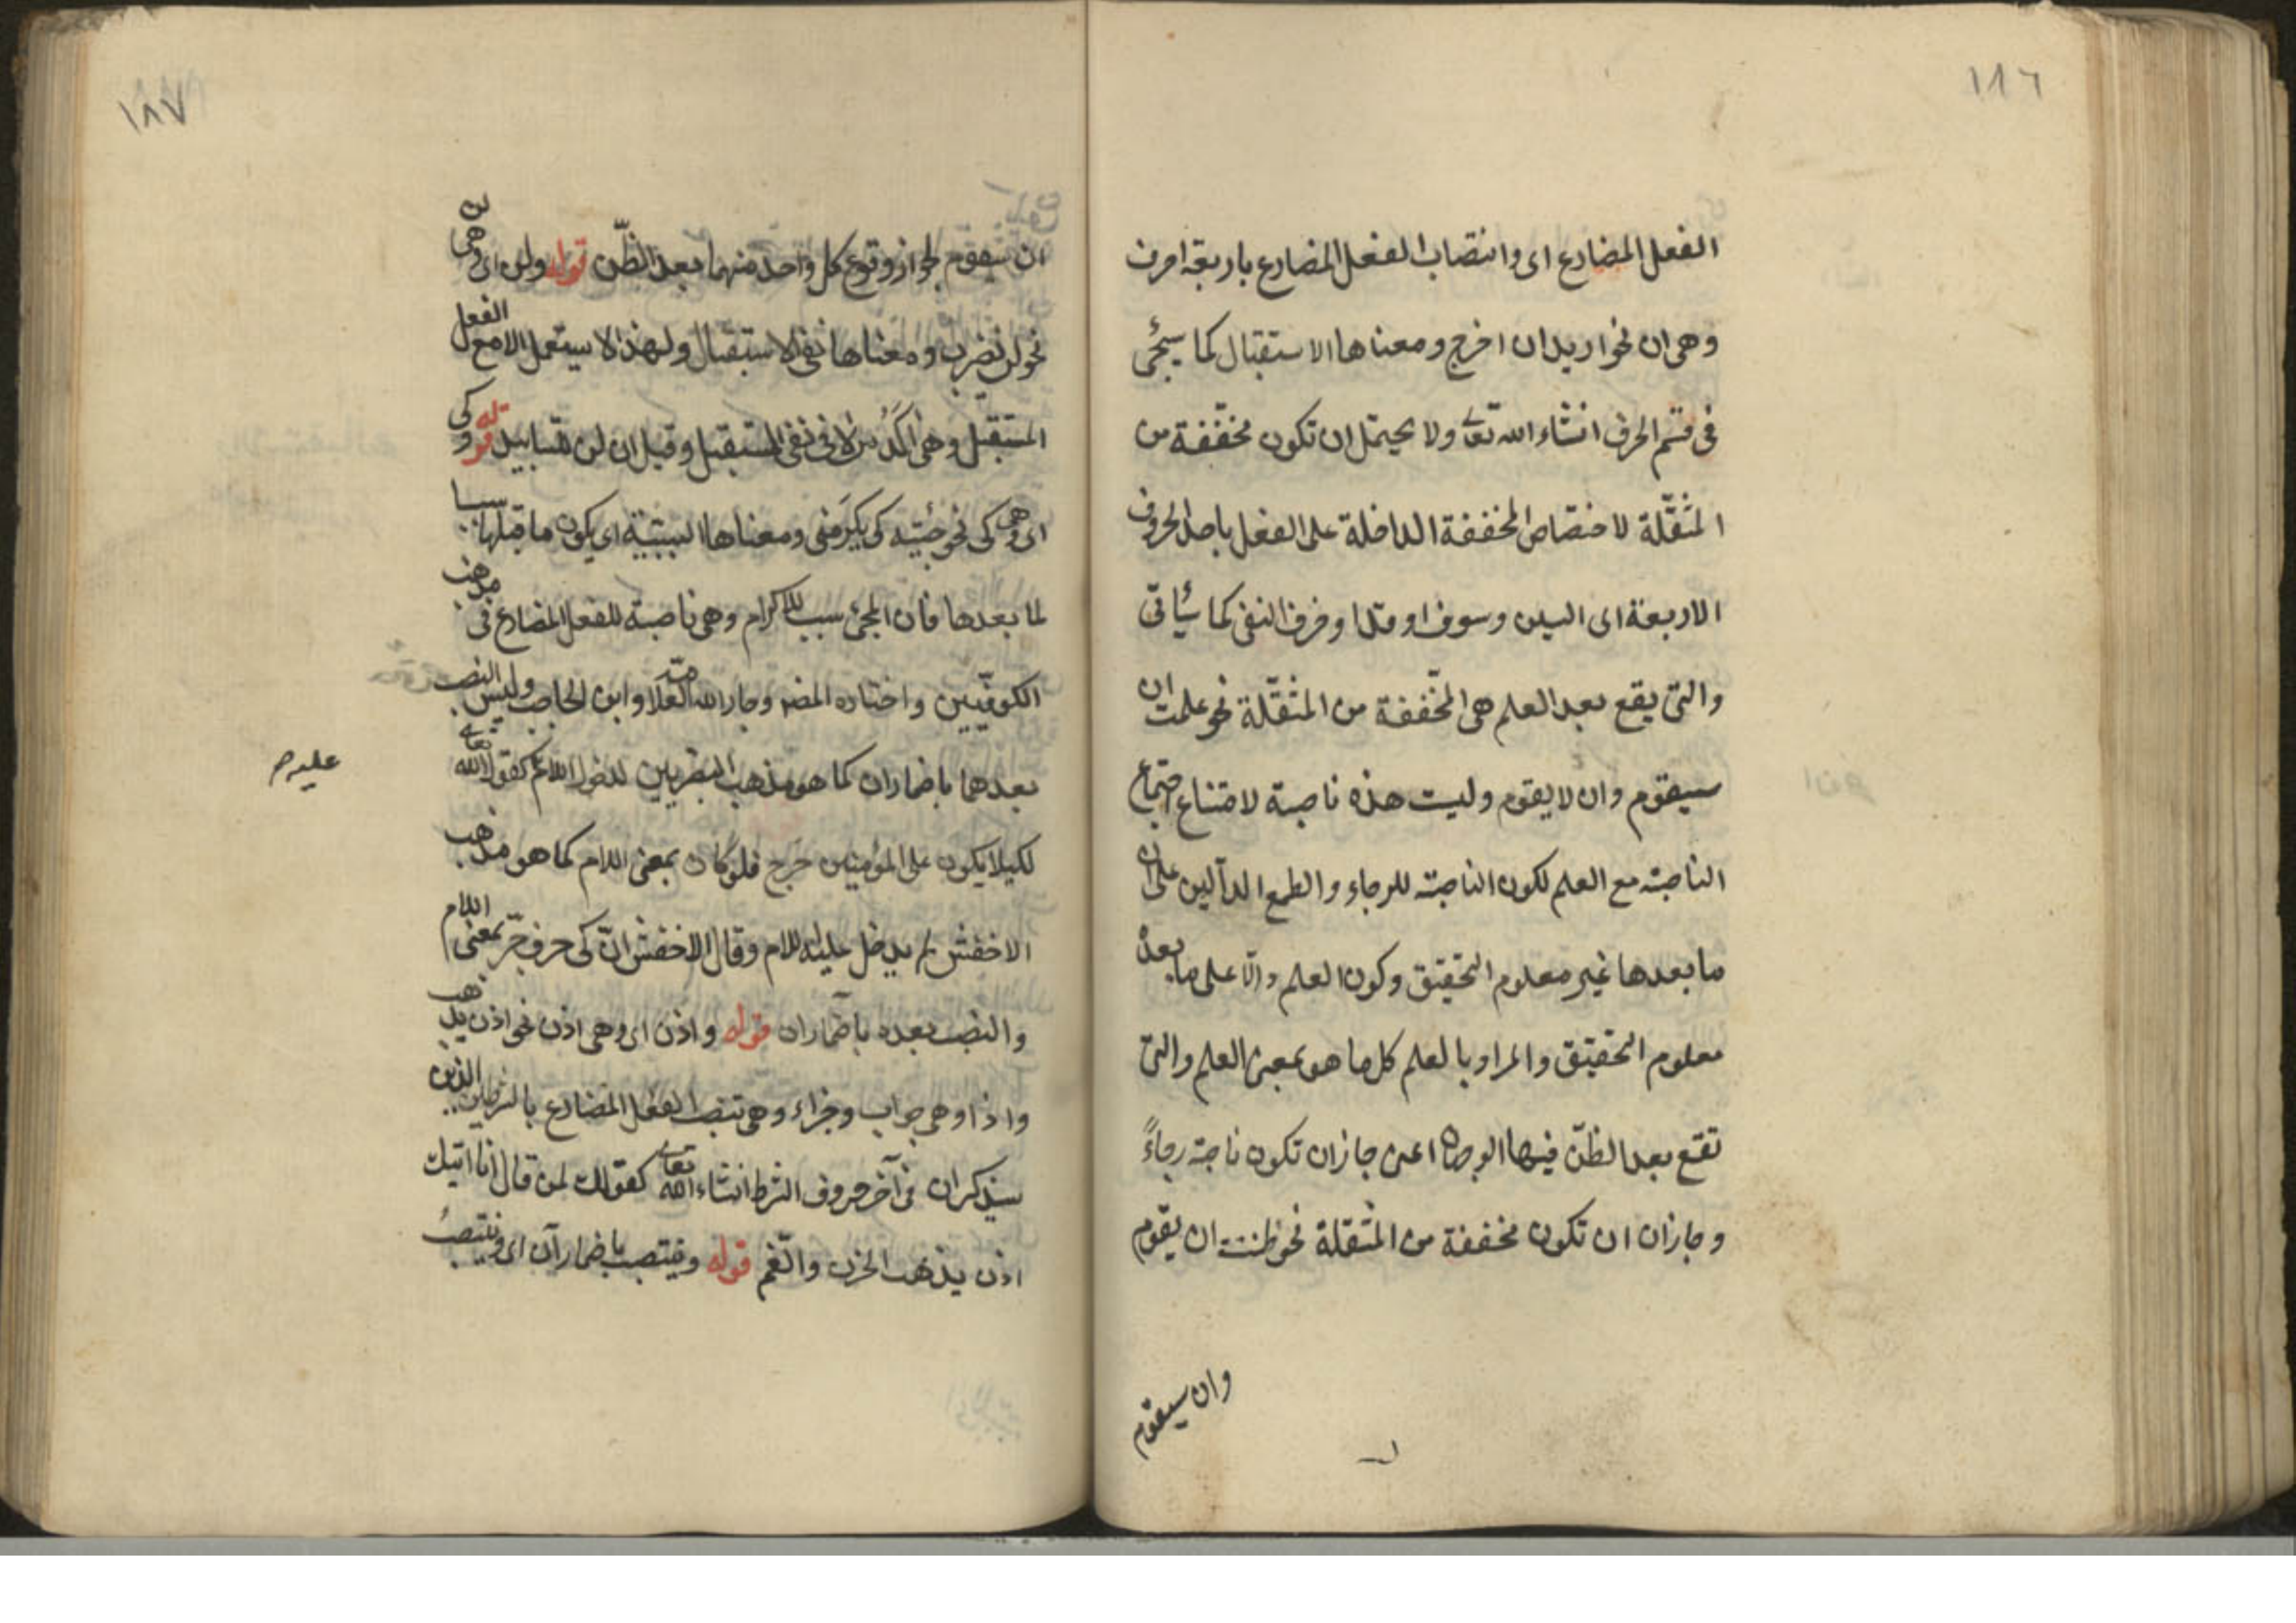 ١٨٦
الفعل المضارع اى وانتصاب الفعل المضارع باربعة احرف
وهى ان نحو اريد ان اخرج ومعناها الاستقبال كما سيجئ
فى قسم الحرف انشاء الله تعالى ولا يحتمل ان تكون مخففة من
المثقّلة لاختصاص المخففة الداخلة على الفعل باحد الحروف
الاربعة اى السين وسوف او قد او حرف النفى كما سيأتى
والتى يقع بعد العلم هى المخّففة من المثقّلة نحو علمت ان
سيقوم وان لا يقوم وليست هذه ناصبة لامتناع اجتماع
الناصبة مع العلم لكون الناصبة للرجاء والطمع الدآلين على ان
ما بعدها غير معلوم التحقيق وكون العلم دالّا على ما بعده
معلوم التحقيق والمراد بالعلم كل ما هو بمعنى العلم والتى
تقع بعد الظنّ فيها الوجهان اعنى جاز ان تكون ناصبة رجاءً
وجاز ان ان تكون مخففة من المثقلة نحو ظننت ان يقوم
وان سيقوم
١٨٧
ان سيقوم لجواز وقوع كل واحد منهما بعد الظّن قوله ولن اى وهى لن
نحو لن يضرب ومعناها نفى الاستقبال ولهذا لا يستعمل الا مع الفعل
المستقبل وهى اكّد من لا فى نفى المستقبل وقيل ان لن للتابيد قوله وكى
اى وهى كى نحو جئته كى يكرَمنى ومعناها السببيّة اى يكون ما قبلها سببا
لما بعدها فان المجئ سبب للاكرام وهى ناصبة للفعل المضارع فى مذهب
الكوفيّين واختاره المصنف وجار الله العلامة وابن الحاجب وليس النصب
بعدهما باضمار ان كما هو مذهب البصريين لدخول اللام كقول الله تعالى
عليه م
لكيلا يكون على المؤمنين حَرَج فلو كان بمعنى اللام كما هو مذهب
الاخفش لم يدخل عليه اللام وقال الاخفش انّ كى حرف جرّ بمعنى اللام
والنصب بعده باضمار ان قوله واذن اى وهى اذن نحو اذن يذهب
واذا وهى جواب وجزاء وهى تنصب الفعل المضارع بالشرطين الذين
سيذكران فى آخر حروف الشرط انشاء الله تعالى كقولك لمن قال انا اتيك
اذن يذهب الحزن والغّم قوله وينتصب باضمار آن اى وينتصبُ